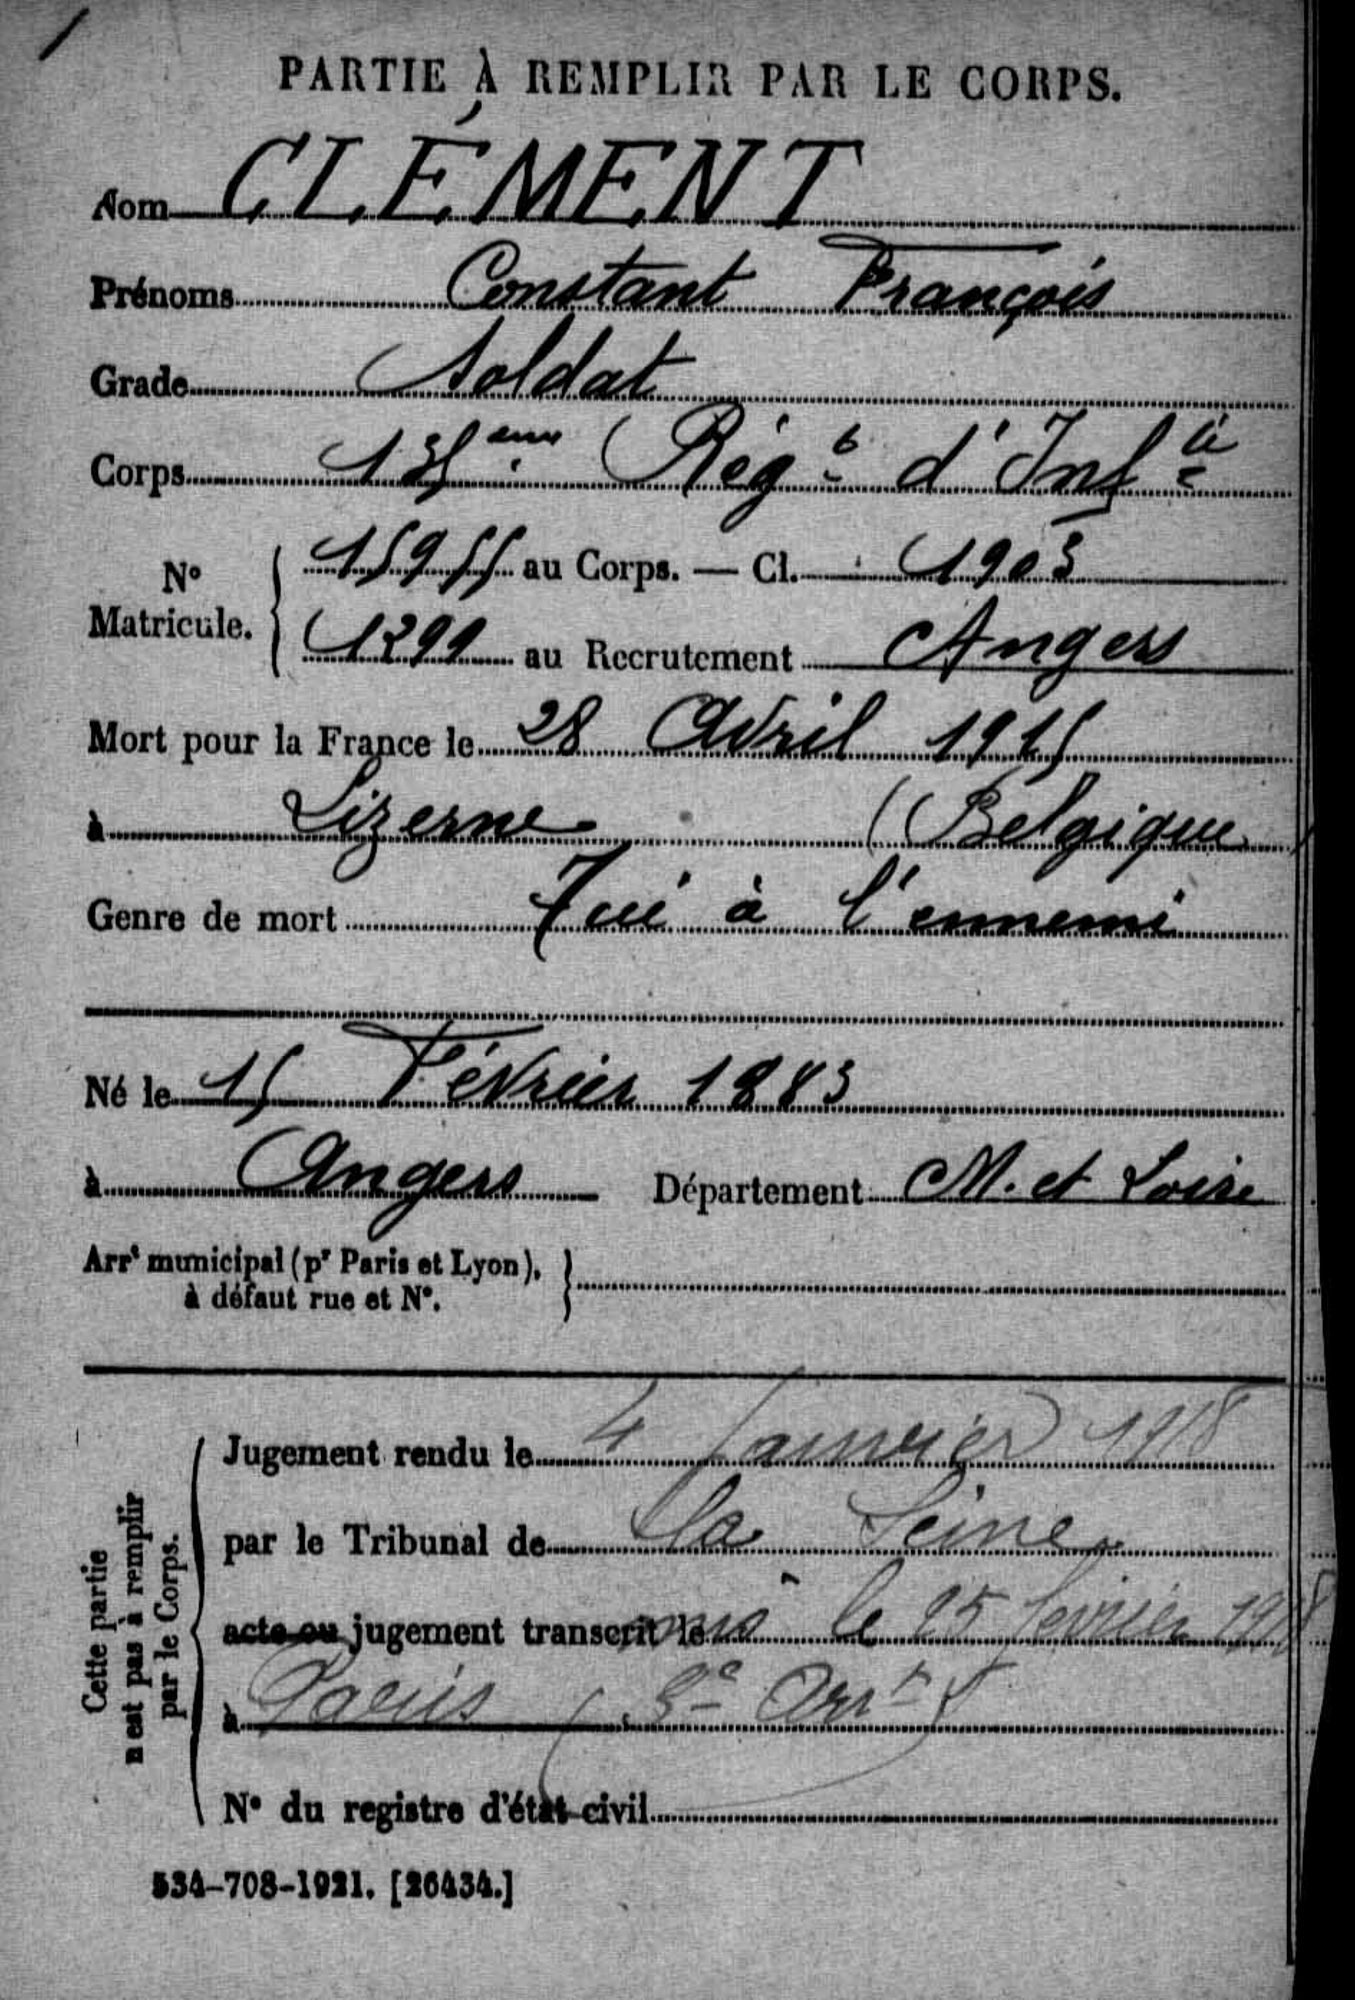 PARTIE À REMPLIR PAR LE CORPS.
Nom CLÉMENT
Prénoms Constant François
Grade Soldat
Corps 135ème Régt d'Inflie
No Matricule. 15955 au Corps. — Cl. 1903
1299 au Recrutement Angers
Mort pour la France le 28 Avril 1915
à Lizerne (Belgique)
Genre de mort Tué à l'ennemi
Né le 15 Février 1883
à Angers Département M. et Loire
Arrt municipal (pr Paris et Lyon),
à défaut rue et No.
Cette partie
n'est pas à remplir
par le Corps.
Jugement rendu le 4 Janvier 1918
par le Tribunal de la Seine
acte ou jugement transcrit le le 25 février 1918
à Paris (3e Arrt)
No du registre d'état civil
534-708-1921. [26434.]